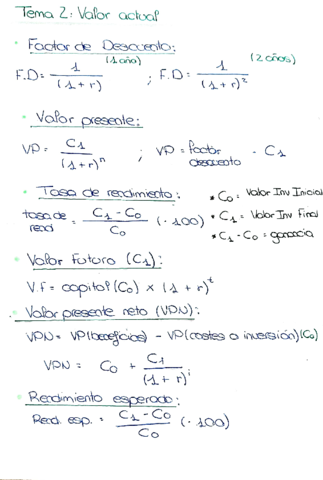 Tema 2: Valor actual
· Factor de Descuento:
F.D = 1 / (1+r) (1 año) ; F.D = 1 / (1+r)² (2 años)
· Valor presente:
VP = C₁ / (1+r)ⁿ ; VP = factor descuento · C₁
· Tasa de rendimiento:
tasa de rend = C₁ - C₀ / C₀ (· 100)
* C₀ = Valor Inv Inicial
* C₁ = Valor Inv Final
* C₁ - C₀ = ganancia
· Valor Futuro (C₁):
V.f = capital (C₀) × (1+r)ᵗ
· Valor presente neto (VPN):
VPN = VP(beneficios) - VP(costes o inversión)(C₀)
VPN = C₀ + C₁ / (1+r)ⁱ
· Rendimiento esperado:
Rend. esp. = C₁ - C₀ / C₀ (· 100)